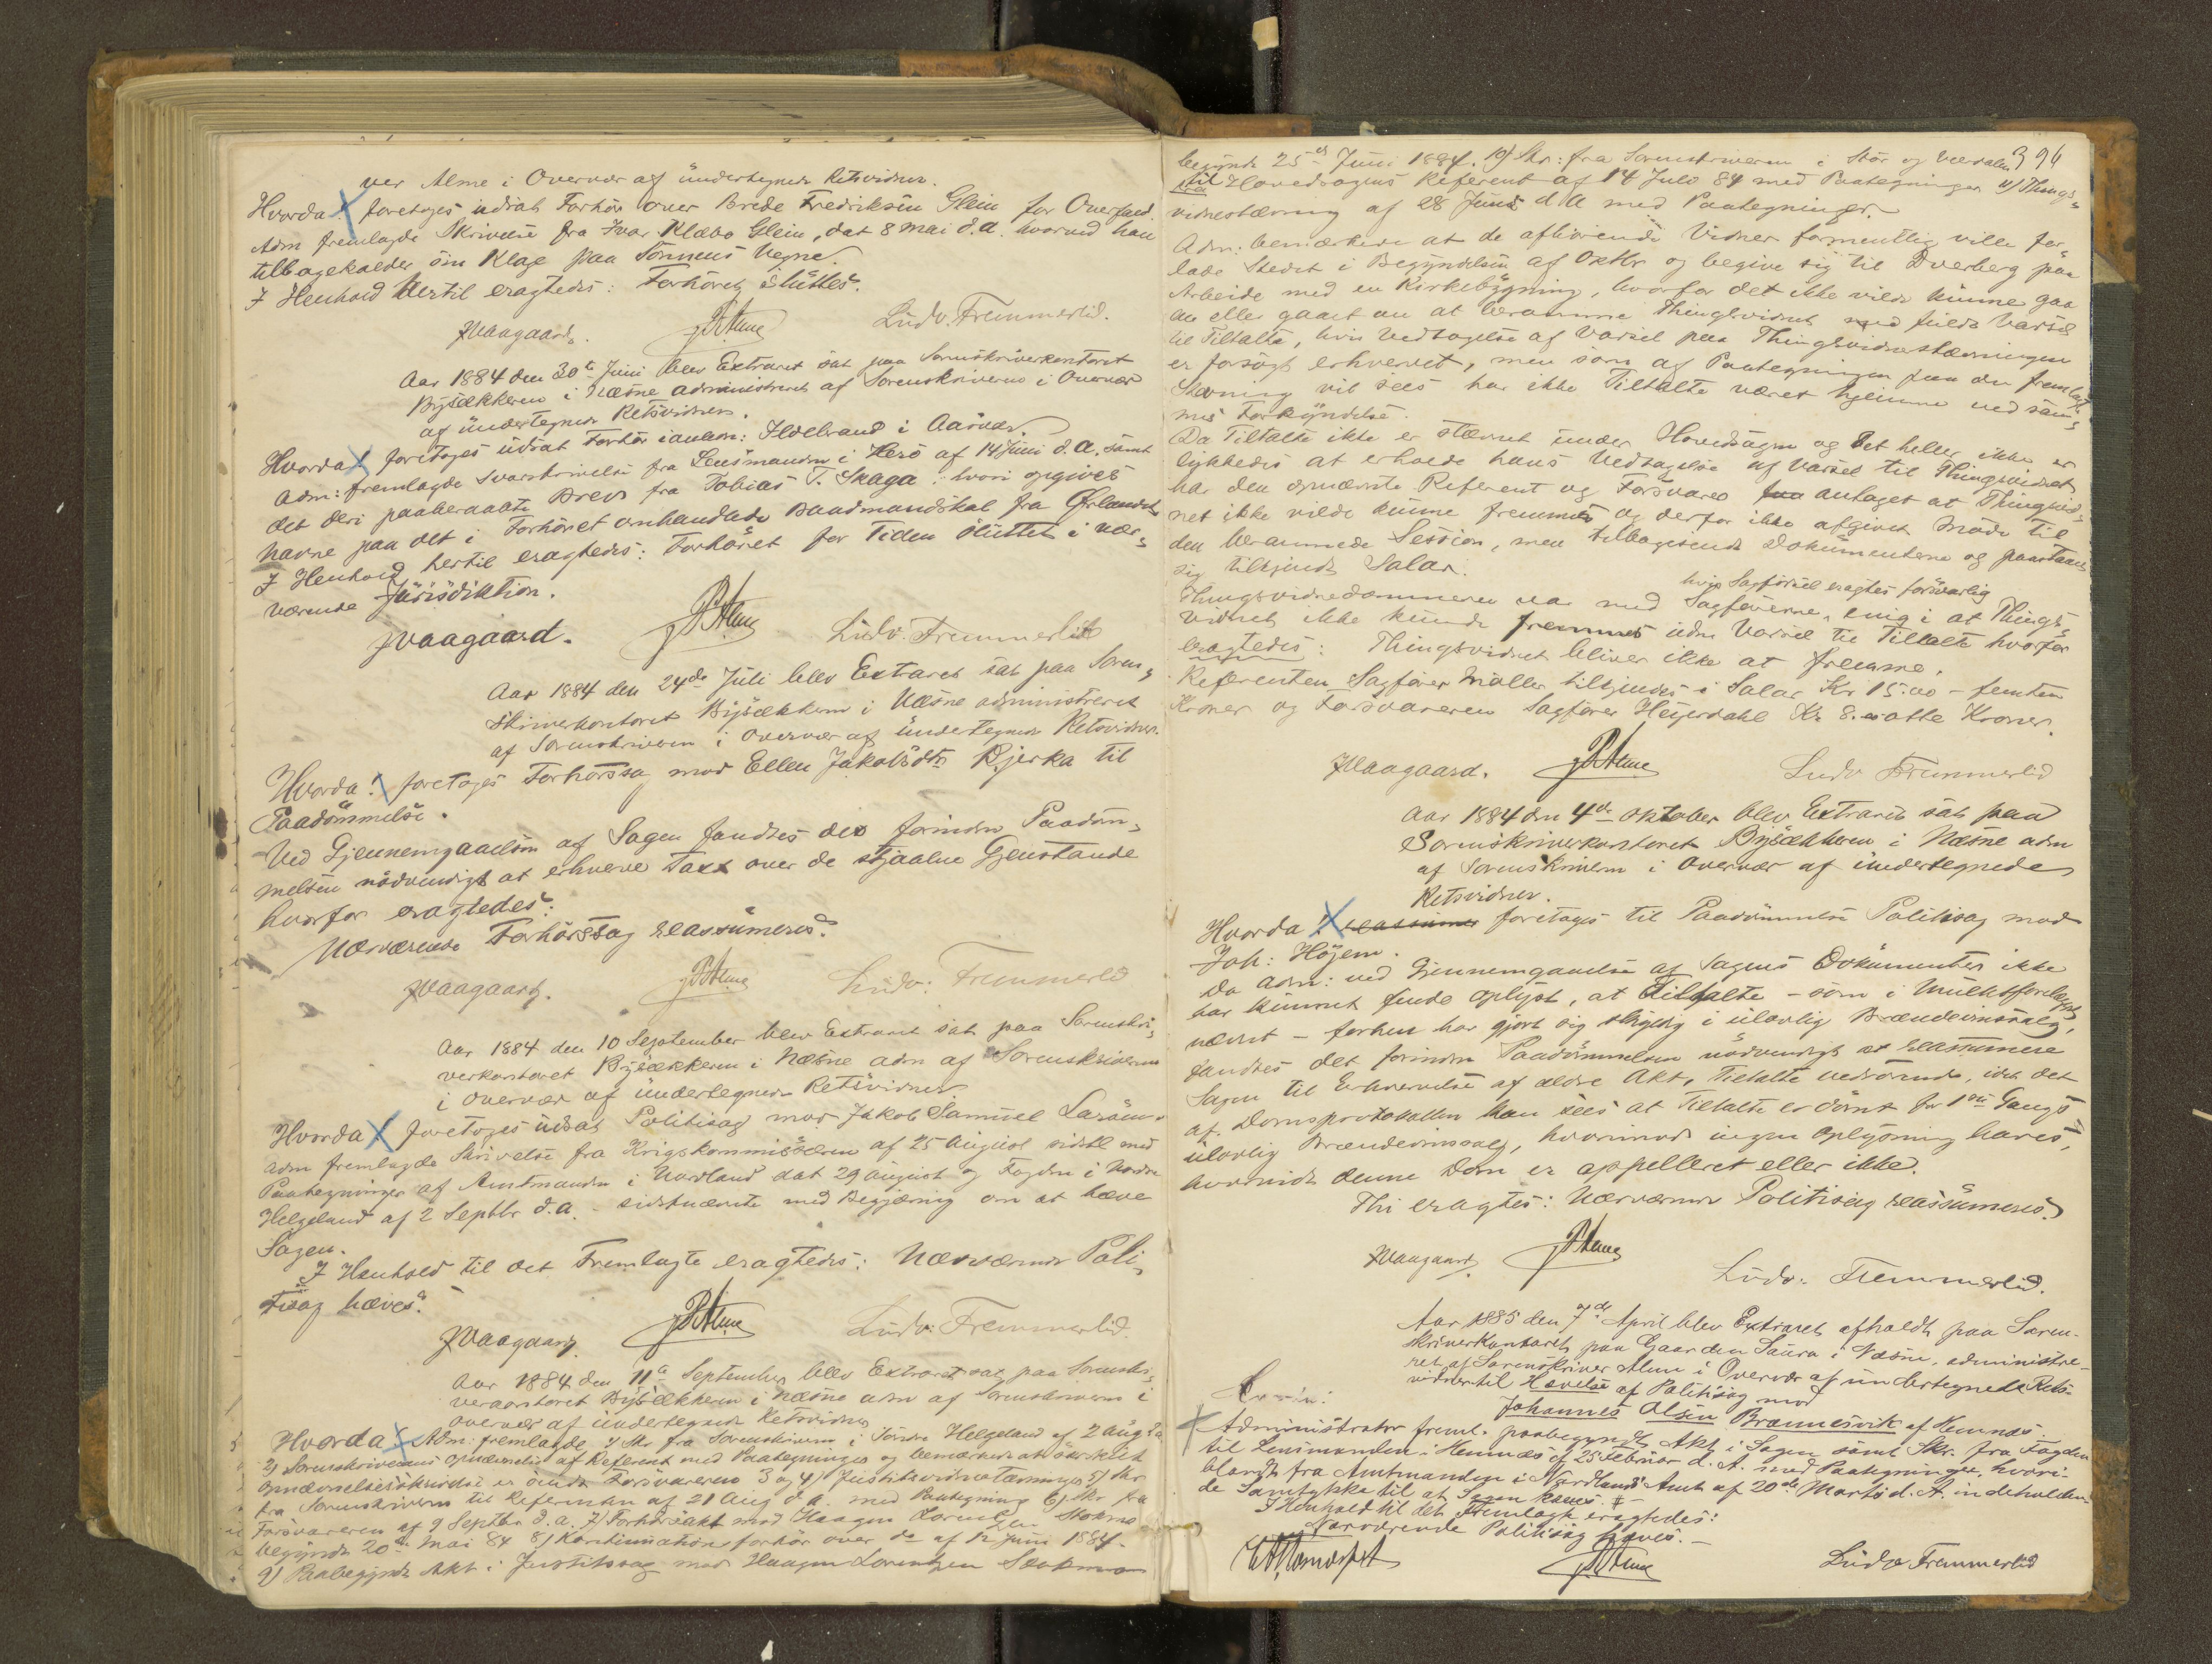 ver Alme i Overvær af undertegnede Retsvidner.
Hvorda! foretoges udsat Forhör over Brede Fredriksen Glein for Overfald.
Adm fremlagde Skrivelse fra Ivar Klæbo Glein, dat 8 Mai d.a. hvorved han
tilbagekalder sin Klage paa Sönnens Vegne.
I Henhold hertil eragtedes: Forhöret sluttes.
JWaagaard. Ludv. Fremmerlid.
Aar 1884 den 30te Juni blev Extraret sat paa Sorenskriverkontoret
Bysækkeren i Næsne administreret af Sorenskriveren i Overvær
af undertegnede Retsvidner.
Hvorda! foretoges udsat Forhör i anledn: Ildebrand i Aasvær
Adm: fremlagde Svarskrivelse fra Lensmanden i Herö af 14 Juni d.a. samt
det deri paaberaabte Brev fra Tobias T. Skaga: hvori opgives
Navne paa det i Forhöret omhandlede Baadmandskab fra Ørlandet
I Henhold hertil eragtedes: Forhöret for Tiden sluttet i nær-
værende Jurisdiktion.
JWaagaard. Ludv. Fremmerlid
Aar 1884 den 24de Juli blev Extraret sat paa Soren-
skriverkontoret Bysækkeren i Næsne administreret
af Sorenskriveren i Overvær af undertegnede Retsvidner.
Hvorda! foretoges Forhörssag mod Ellen Jakobsdtr Bjerka til
Paadömmelse.
Ved Gjennemgaaelsen af Sagen fandtes det forinden Paadöm-
melsen nödvendigt at erhverve Taxt over de stjaalne Gjenstande
hvorfor eragtedes:
Nærværende Forhörssag reassumeres.
JWaagaard. Ludv: Fremmerlid
Aar 1884 den 10 September blev Extraret sat paa Sorenskri-
verkontoret Bysækkeren i Næsne adm af Sorenskriveren
i Overvær af undertegnede Retsvidner
Hvorda foretoges udsat Politisag mod Jakob Samuel
Adm fremlagde Skrivelse fra Krigskommissæren af 25 August sidstl med
Paategninger af Amtmanden i Nordland dat 29 August og Fogden i Nordre
Helgeland af 2 Septbr d.a. - sidstnævnte med Begjæring om at hæve
Sagen.
I Henhold til det Fremlagte eragtedes: Nærværende Poli-
tisag hæves.
JWaagaard. Ludv: Fremmerlid.
Aar 1884 den 11te September blev Extraret sat paa Sorenskri-
verkontoret Bysækkeren i Næsne adm af Sorenskriveren i
Overvær af undertegnede Retsvidner
Hvorda Adm: fremlagde 1) Skr fra Sorenskriveren i Söndre Helgeland af 2 Aug d.a.
2) Sorenskriverens opnævnelse af Referent med Paategninger og bemærkede at særskilt
opnævnelsesskrivelse er sendt Forsvareren 3 og 4) 5) Skr
fra Sorenskriveren til Referenten af 21 Aug d.a. med Paategning 6) Skr fra
Forsvareren af 9 Septbr d.a. 7) Forhörsakt mod Haagen Lorentzen Stokmo
begyndt 20de Mai 84 8) Kontinuationsforhör over do af 12 Juni 1884.
9) Paabegyndt Akt i Justitssag mod Haagen Lorentzen Stokmo
394
begyndt 25de Juni 1884. 10) Skr: fra Sorenskriveren i Stör og Værdalen
til Hovedsagens Referent af 14 Juli 84 med Paategninger 11) Things-
vidnestævning af 28 Juni d.A med Paategninger.
Adm: bemærkede at de afhörende Vidner formentlig ville for-
lade Stedet i Begyndelsen af Oktbr og begive sig til Dverberg paa
Arbeide med en Kirkebygning, hvorfor det ikke vilde kunne gaa
an eller gaaet an at beramme Thingsvidnet med fulde Varsel
til Tiltalte, hvis Vedtagelse af Varsel paa Thingsvidnestævningen
er forsögt erhvervet, men som af Paategningen paa den fremlagte
Stævning vil sees har ikke Tiltalte været hjemme ved sam-
mes Forkyndelse.
Da Tiltalte ikke er stævnet under Hovedsagen og det heller ikke er
lykkedes at erholde hans Vedtagelse af Varsel til Thingsvidnet
har den opnævnte Referent og Forsvarer antaget at Thingsvid-
net ikke vilde kunne fremmes og derfor ikke afgivet Möde til
den berammede Session, men tilbagesendt Dokumenterne og paastaaet
sig tilkjendt Salar.
hvis Sagförsel eragtes forsvarlig
Thingsvidnedommeren var med Sagförerne, enig i at Things-
vidnet ikke kunde fremmes uden Varsel til Tiltalte hvorfor
eragtedes: Thingsvidnet bliver ikke at fremme.
Referenten Sagförer Möller tilkjendes i Salar Kr 15.00 - femten
Kroner og Forsvareren Sagförer Heyerdahl Kr 8.00 otte Kroner.
JWaagaard. Ludv Fremmerlid
Aar 1884 den 4de Oktober blev Extraret sat paa
Sorenskriverkontoret Bysækkeren i Næsne adm
af Sorenskriveren i Overvær af undertegnede
Retsvidner.
Hvorda! reassumer foretoges til Paadömmelse Politisag mod
Joh: Höjem.
Da Adm: ved Gjennemgaaelse af Sagens Dokumenter ikke
har kunnet finde oplyst, at Tiltalte - som i Mulktsforelægget
nævnt - forhen har gjort sig skyldig i ulovlig Brændevinssalg,
fandtes det forinden Paadömmelsen nödvendigt at reassumere
Sagen til Erhvervelse af ældre Akt, Tiltalte vedrörende, idet det
af Domsprotokollen kan sees at Tiltalte er dömt for 1ste Gangs
ulovlig Brændevinssalg, hvorimod ingen Oplysning haves,
hvorvidt denne Dom er appelleret eller ikke.
Thi eragtes: Nærværende Politisag reassumeres.
JWaagaard. Ludv: Fremmerlid.
Aar 1885 den 7de April blev Extraret afholdt paa Soren-
skriverkontoret paa Gaarden Saura i Næsne, administre-
ret af Sorenskriver Alme i Overvær af undertegnede Rets-
vidner til Hævelse af Politisag mod
Johannes Olsen Brennesvik af Hemnæs
Administrator freml. paabegyndt Akt i Sagen samt Skr. fra Fogden
til Lensmanden i Hemnæs af 25 Februar d. A. med Paategninger, hvori-
blandt fra Amtmanden i Nordlands Amt af 20de Marts d. A. indeholden-
de Samtykke til at Sagen hæves. -
I Henhold til det Fremlagte eragtedes:
Nærværende Politisag hæves. -
Ludv Fremmerlid